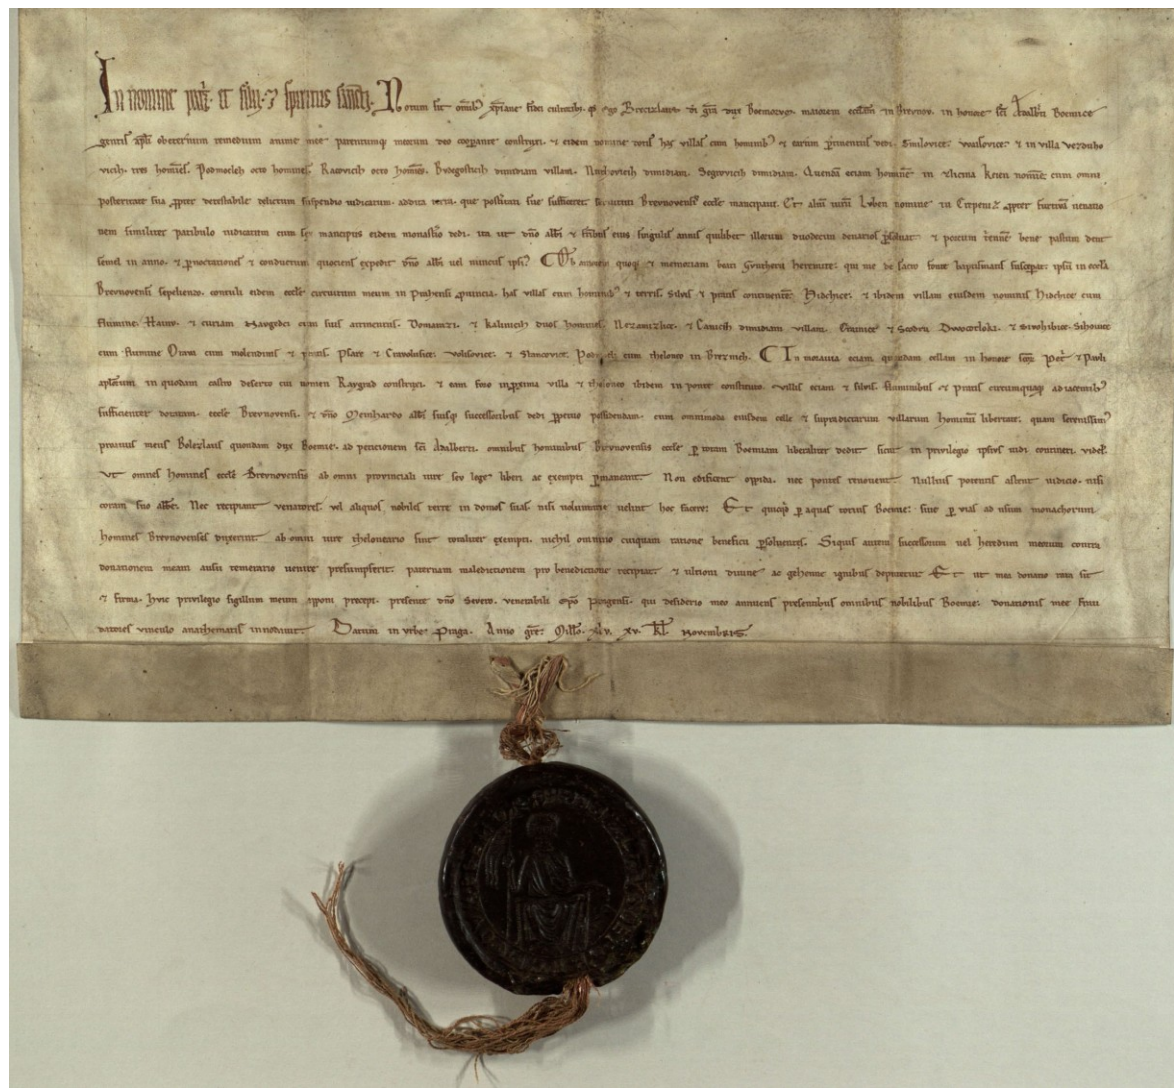 In nomine pat͛s. et filii. ⁊ spiritus sancti. Notum sit om̅ib; xp̅iane fidei cultorib;. qd̕ ego Brecizlaus. di̅ gr̅a dux Boemorum. maiorem eccl̅iam in Brevnov. in honore sc̅i Adalb̅ti Boemice
gentis apl̅i ob eternum remedium anime mee parentumq; meorum deo coop̲ante construxi. ⁊ eidem nomine dotis has villas cum hominib; ⁊ earum p̲tinentiis dedi. Smilovice. ⁊ in villa
vicih. tres homines. Podmocleh octo homines. Racovicih octo homines. Bydegosticih dimidiam villam. dimidiam. dimidiam. Quendam eciam hominem in nomine. cum omni
posteritate sua p̲pter detestabile delictum suspendio iudicatum. addita terra. que posteritati sue sufficeret. servituti Brevnovensis eccl̅e mancipavi. Et alium virum Lyben nomine in p̲pter furtivam venatio
nem similiter patibulo iudicatum cum sex mancipiis eidem monast̅io dedi. ita ut dn̅o abb̅i ⁊ fr̅ibus eius singulis annis quilibet illorum duodecim denarios p̲solvat. ⁊ porcum bene pastum dent
semel in anno. ⁊ p̲noctationes ⁊ conductum quociens expedit dn̅o abb̅i vel nunciis ipsi;. Ob amorem quoq; ⁊ memoriam beati Gvntheri heremite. qui me de sacro fonte baptismatis suscepat. ipsum in eccl̅a
Brevnovensi sepeliendo. contuli eidem eccl̅e circuitum meum in p̲vincia. has villas cum hominib; ⁊ terris. silvis ⁊ pratis continentem. Hidchice. ⁊ ibidem villam eiusdem nominis Hidchice cum
flumine. ⁊ curiam cum suis attinentiis. ⁊ Kalinicih duos homines. ⁊ dimidiam villam. ⁊ ⁊
cum flumine cum molendinis ⁊ pratis. Psare ⁊ ⁊ Slancovice. cum theloneo in Breznich. In moravia eciam quandam cellam in honore sc̅orum Petri ⁊ Pauli
apl̅orum in quodam castro deserto cui nomen Raygrad construxi. ⁊ eam foro in p̲xima villa ⁊ theloneo ibidem in ponte constituto. villis eciam ⁊ silvis. fluminibus ⁊ pratis circumquaq; adiacentib;
sufficienter dotatam. eccl̅e Brevnovensi. ⁊ dn̅o Meinhardo abb̅i suisq; successoribus dedi p̲petuo possidendam. cum omnimoda eiusdem celle ⁊ supradictarum villarum hominum libertate. quam serenissim;
proavus meus Bolezlaus quondam dux Boemie. ad peticionem sc̅i Adalberti. omnibus hominibus Brevnovensis eccl̅e p̲ totam Boemiam liberaliter dedit. sicut in privilegio ipsius vidi contineri. videl̅.
Vt omnes homines eccl̅e Brevnovensis ab omni provinciali iure seu lege. liberi ac exempti p̲maneant. Non edificent oppida. nec pontes renovent. Nullius potentis astent iudicio. nisi
coram suo abb̅e. Nec recipiant venatores. vel aliquos nobiles terre in domos suas. nisi voluntarie velint hoc facere. Et quicqd̕ p̲ aquas totius Boemie. sive p̲ vias ad usum monachorum
homines Brevnovenses duxerint. ab omni iure theloneario sint totaliter exempti. nichil omnino cuiquam ratione beneficii p̲solventes. Siquis autem successorum vel heredum meorum contra
donationem meam ausu temerario venire presumpserit. paternam maledictionem pro benedictione recipiat. ⁊ ultioni divine ac gehenne ignibus deputetur. Et ut mea donatio rata sit
⁊ firma. huic privilegio sigillum meum apponi precepi. presente dn̅o Severo. venerabili ep̅o Pragensi. qui desiderio meo annuens presentibus omnibus nobilibus Boemie. donationis mee frau
datores vinculo anathematis innodavit. Datum in vrbe Praga. Anno gr̅e. Mill̅o. xlv. xv. Kl̅ novembris.